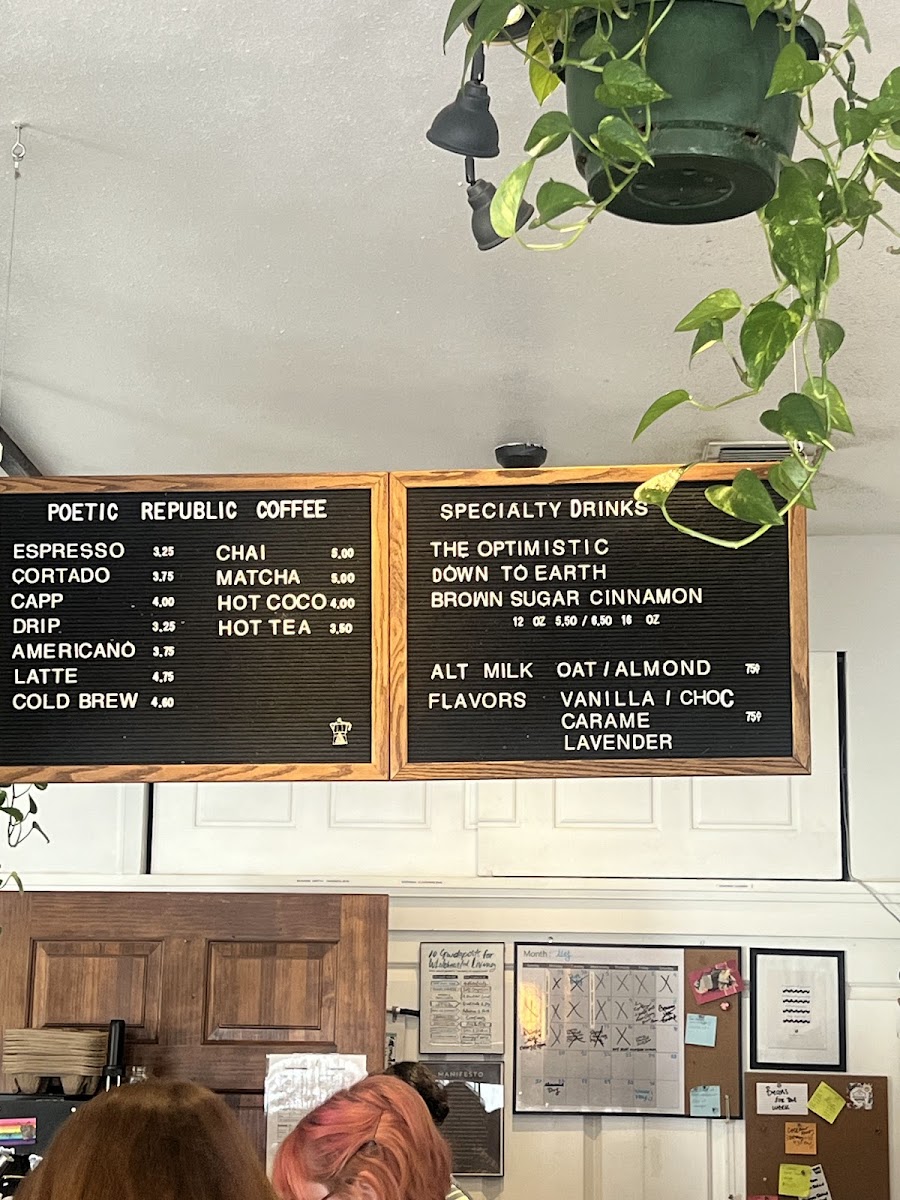 POETIC REPUBLIC COFFEE
ESPRESSO 3.25
CORTADO 3.75
CAPP 4.00
DRIP 3.25
AMERICANO 3.75
LATTE 4.75
COLD BREW 4.60
CHAI 5.00
MATCHA 5.00
HOT COCO 4.00
HOT TEA 3.50
SPECIALTY DRINKS
THE OPTIMISTIC
DOWN TO EARTH
BROWN SUGAR CINNAMON
12 OZ 5.50 / 6.50 16 OZ
ALT MILK OAT / ALMOND 75¢
FLAVORS VANILLA / CHOC
CARAME 75¢
LAVENDER
10 Guideposts for
Wholehearted Living
Month:
MANIFESTO